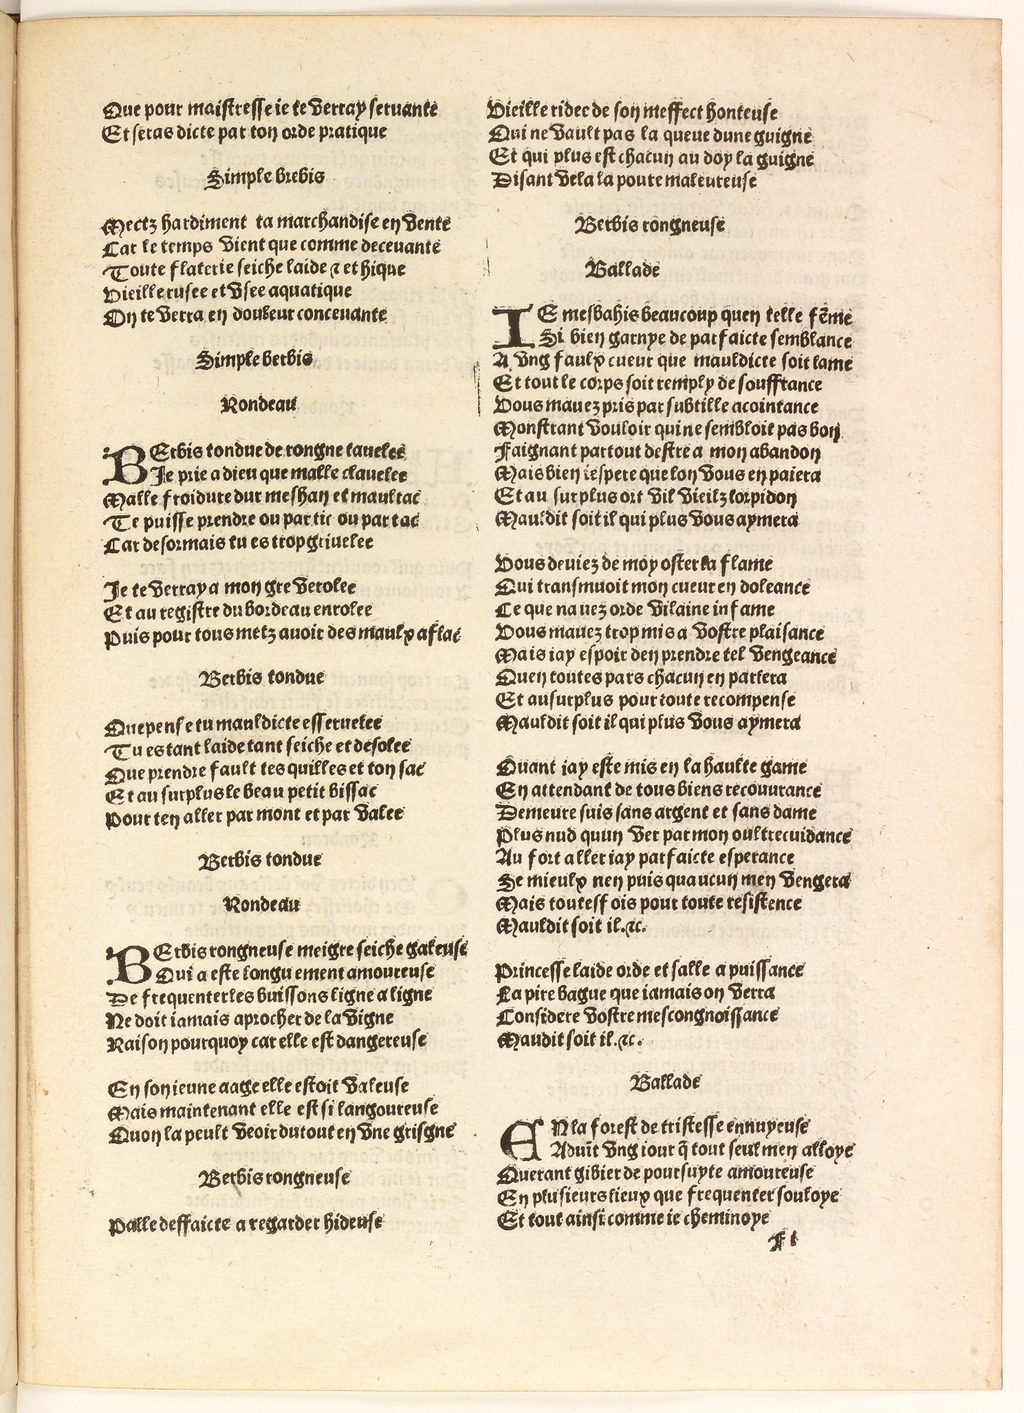 Que pour maistresse ie te verray seruante
Et seras dicte par ton orde pratique
Simple brebis
Mectz hardiment ta marchandise en vente
Car le temps vient que comme deceuante
Toute flaterie seiche laide ⁊ ethique
Vieille rusee et vsee aquatique
On te verra en douleur conceuante
Simple berbis
Rondeau
BErbis tondue de rongne lauelee
Je prie a dieu que malle clauelee
Malle froidure dur meshan et maultac
Te puisse prendre ou par tic ou par tac
Car desormais tu es trop griuelee
Je te verray a mon gre verolee
Et au registre du bordeau enrolee
Puis pour tous metz auoir des maulx aflac
Berbis tondue
Que pense tu mauldicte esseruelee
Tu es tant laide tant seiche et desolee
Que prendre fault tes quilles et ton sac
Et au surplus le beau petit bissac
Pour ten aller par mont et par valee
Berbis tondue
Rondeau
BErbis rongneuse meigre seiche galeuse
Qui a este longuement amoureuse
De frequenter les buissons ligne a ligne
Ne doit iamais aprocher de la vigne
Raison pourquoy car elle est dangereuse
En son ieune aage elle estoit valeuse
Mais maintenant elle est si langoureuse
Quon la peult veoir du tout en vne grisgne
Berbis rongneuse
Palle deffaicte a regarder hideuse
Vieille ridee de son meffect honteuse
Qui ne vault pas la queue dune guigne
Et qui plus est chacun au doy la guigne
Disant vela la poure maleureuse
Berbis rongneuse
Ballade
IE mesbahis beaucoup quen telle fēme
Si bien garnye de parfaicte semblance
A vng faulx cueur que mauldicte soit lame
Et tout le corps soit remply de souffrance
Vous mauez pris par subtille acointance
Monstrant vouloir qui ne sembloit pas bon
Faignant par tout destre a mon abandon
Mais bien iespere que lon vous en paiera
Et au surplus ort vil vieilz lorpidon
Mauldit soit il qui plus vous aymera
Vous deuiez de moy oster la flame
Qui transmuoit mon cueur en doleance
Ce que nauez orde vilaine infame
Vous mauez trop mis a vostre plaisance
Mais iay espoir den prendre tel vengeance
Quen toutes pars chacun en parlera
Et au surplus pour toute recompense
Mauldit soit il qui plus vous aymera
Quant iay este mis en la haulte game
En attendant de tous biens recouurance
Demeure suis sans argent et sans dame
Plus nud quun ver par mon oultrecuidance
Au fort aller iay parfaicte esperance
Se mieulx nen puis quaucun men vengera
Mais toutesfois pour toute resistence
Mauldit soit il.⁊c.
Princesse laide orde et salle a puissance
La pire bague que iamais on verra
Considere vostre mescongnoissance
Maudit soit il.⁊c.
Ballade
EN la forest de tristesse ennuyeuse
Aduīt vng iour q̄ tout seul men alloye
Querant gibier de poursuyte amoureuse
En plusieurs lieux que frequenter souloye
Et tout ainsi comme ie cheminoye